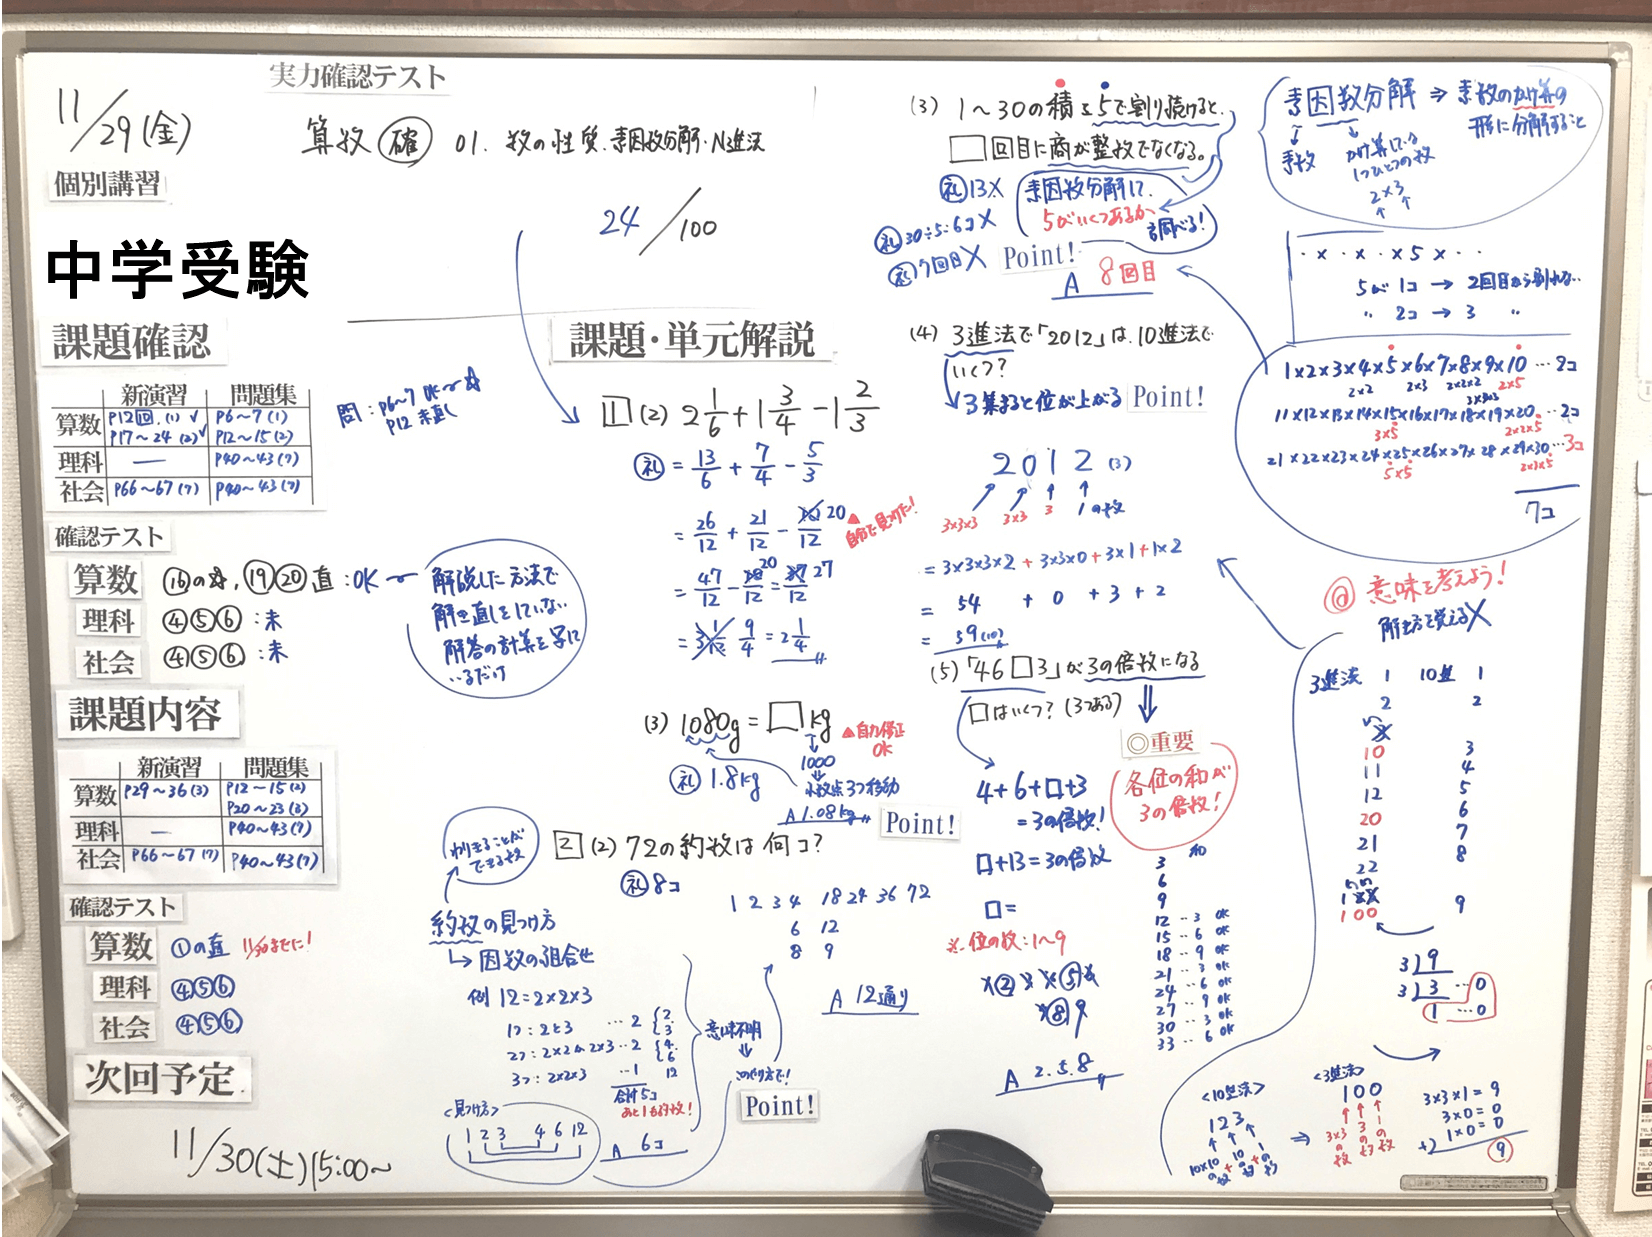 11/29(金)
実力確認テスト
算数 確 01. 数の性質・素因数分解・N進法
個別講習
24/100
中学受験
課題確認
新演習 問題集
算数 P12回,(1)✓ P6～7(1)
P17～24(2)✓ P12～15(2)
理科 ― P40～43(7)
社会 P66～67(7) P40～43(7)
問:P6～7 OK
P12 未直し
確認テスト
算数 ⑯の, ⑲⑳直:OK
理科 ④⑤⑥:未
社会 ④⑤⑥:未
解説した方法で
解き直しをしていない
解答の計算を写して
いるだけ
課題内容
新演習 問題集
算数 P29～36(3) P12～15(2)
P20～23(3)
理科 ― P40～43(7)
社会 P66～67(7) P40～43(7)
確認テスト
算数 ①の直 11/30までに!
理科 ④⑤⑥
社会 ④⑤⑥
次回予定
11/30(土)15:00～
課題・単元解説
1 (2) 2 1/6 + 1 3/4 - 1 2/3
礼 = 13/6 + 7/4 - 5/3
= 26/12 + 21/12 - 20/12
▲自分で見つけた!
= 47/12 - 20/12 = 27/12
= 9/4 = 2 1/4
(3) 1080g = □kg
▲自力修正
OK
1000
礼 1.8kg
小数点3つ移動
A 1.08kg
Point!
2 (2) 72の約数は何コ?
礼 8コ
わりきることが
できる数
1 2 3 4 18 24 36 72
6 12
8 9
A 12通り
約数の見つけ方
↳因数の組合せ
例 12=2×2×3
1つ:2と3 …2 {2.3
2つ:2×2と2×3…2 {4.6
3つ:2×2×3 …1 12
合計5コ
あと1も約数!
意味不明
⇓
このやり方で!
Point!
<見つけ方>
1 2 3 4 6 12
A 6コ
(3) 1～30の積を5で割り続けると、
□回目に商が整数でなくなる。
礼13✗
素因数分解して、
5がいくつあるか
調べる!
礼30÷5=6コ✗
礼7回目✗
Point!
A 8回目
(4) 3進法で「2012」は、10進法で
いくつ?
3集まると位が上がる Point!
2012(3)
3×3×3 3×3 3 1の数
= 3×3×3×2 + 3×3×0 + 3×1 + 1×2
= 54 + 0 + 3 + 2
= 59(10)
(5)「46□3」が3の倍数になる
□はいくつ?(3つある)
◎重要
各位の和が
3の倍数!
4+6+□+3
=3の倍数!
□+13=3の倍数
□=
※位の数:1～9
✗②✗✗⑤✗
✗⑧9
A 2.5.8
和
3
6
9
12 ‥3 OK
15 ‥6 OK
18 ‥9 OK
21 ‥3 OK
24 ‥6 OK
27 ‥9 OK
30 ‥3 OK
33 ‥6 OK
素因数分解 ⇒ 素数のかけ算の
形に分解すること
素数
かけ算している
1つひとつの数
2×3
・×・×・×5×・・
5が 1コ → 2回目から割れない
〃 2コ → 3 〃
1×2×3×4×5×6×7×8×9×10 …2コ
2×2 2×3 2×2×2 3×3 2×5
11×12×13×14×15×16×17×18×19×20…2コ
3×5 2×2×5
21×22×23×24×25×26×27×28×29×30…3コ
5×5 2×3×5
7コ
@ 意味を考えよう!
解き方を覚える✗
3進法 1 10進 1
2 2
10 3
11 4
12 5
20 6
21 7
22 8
100 9
3)9
3)3 …0
1 …0
<10進法>
123
10×10の数+10の数+1の数
⇒
<3進法>
100
3×3の数 3の数 1の数
3×3×1=9
3×0=0
1×0=0
9